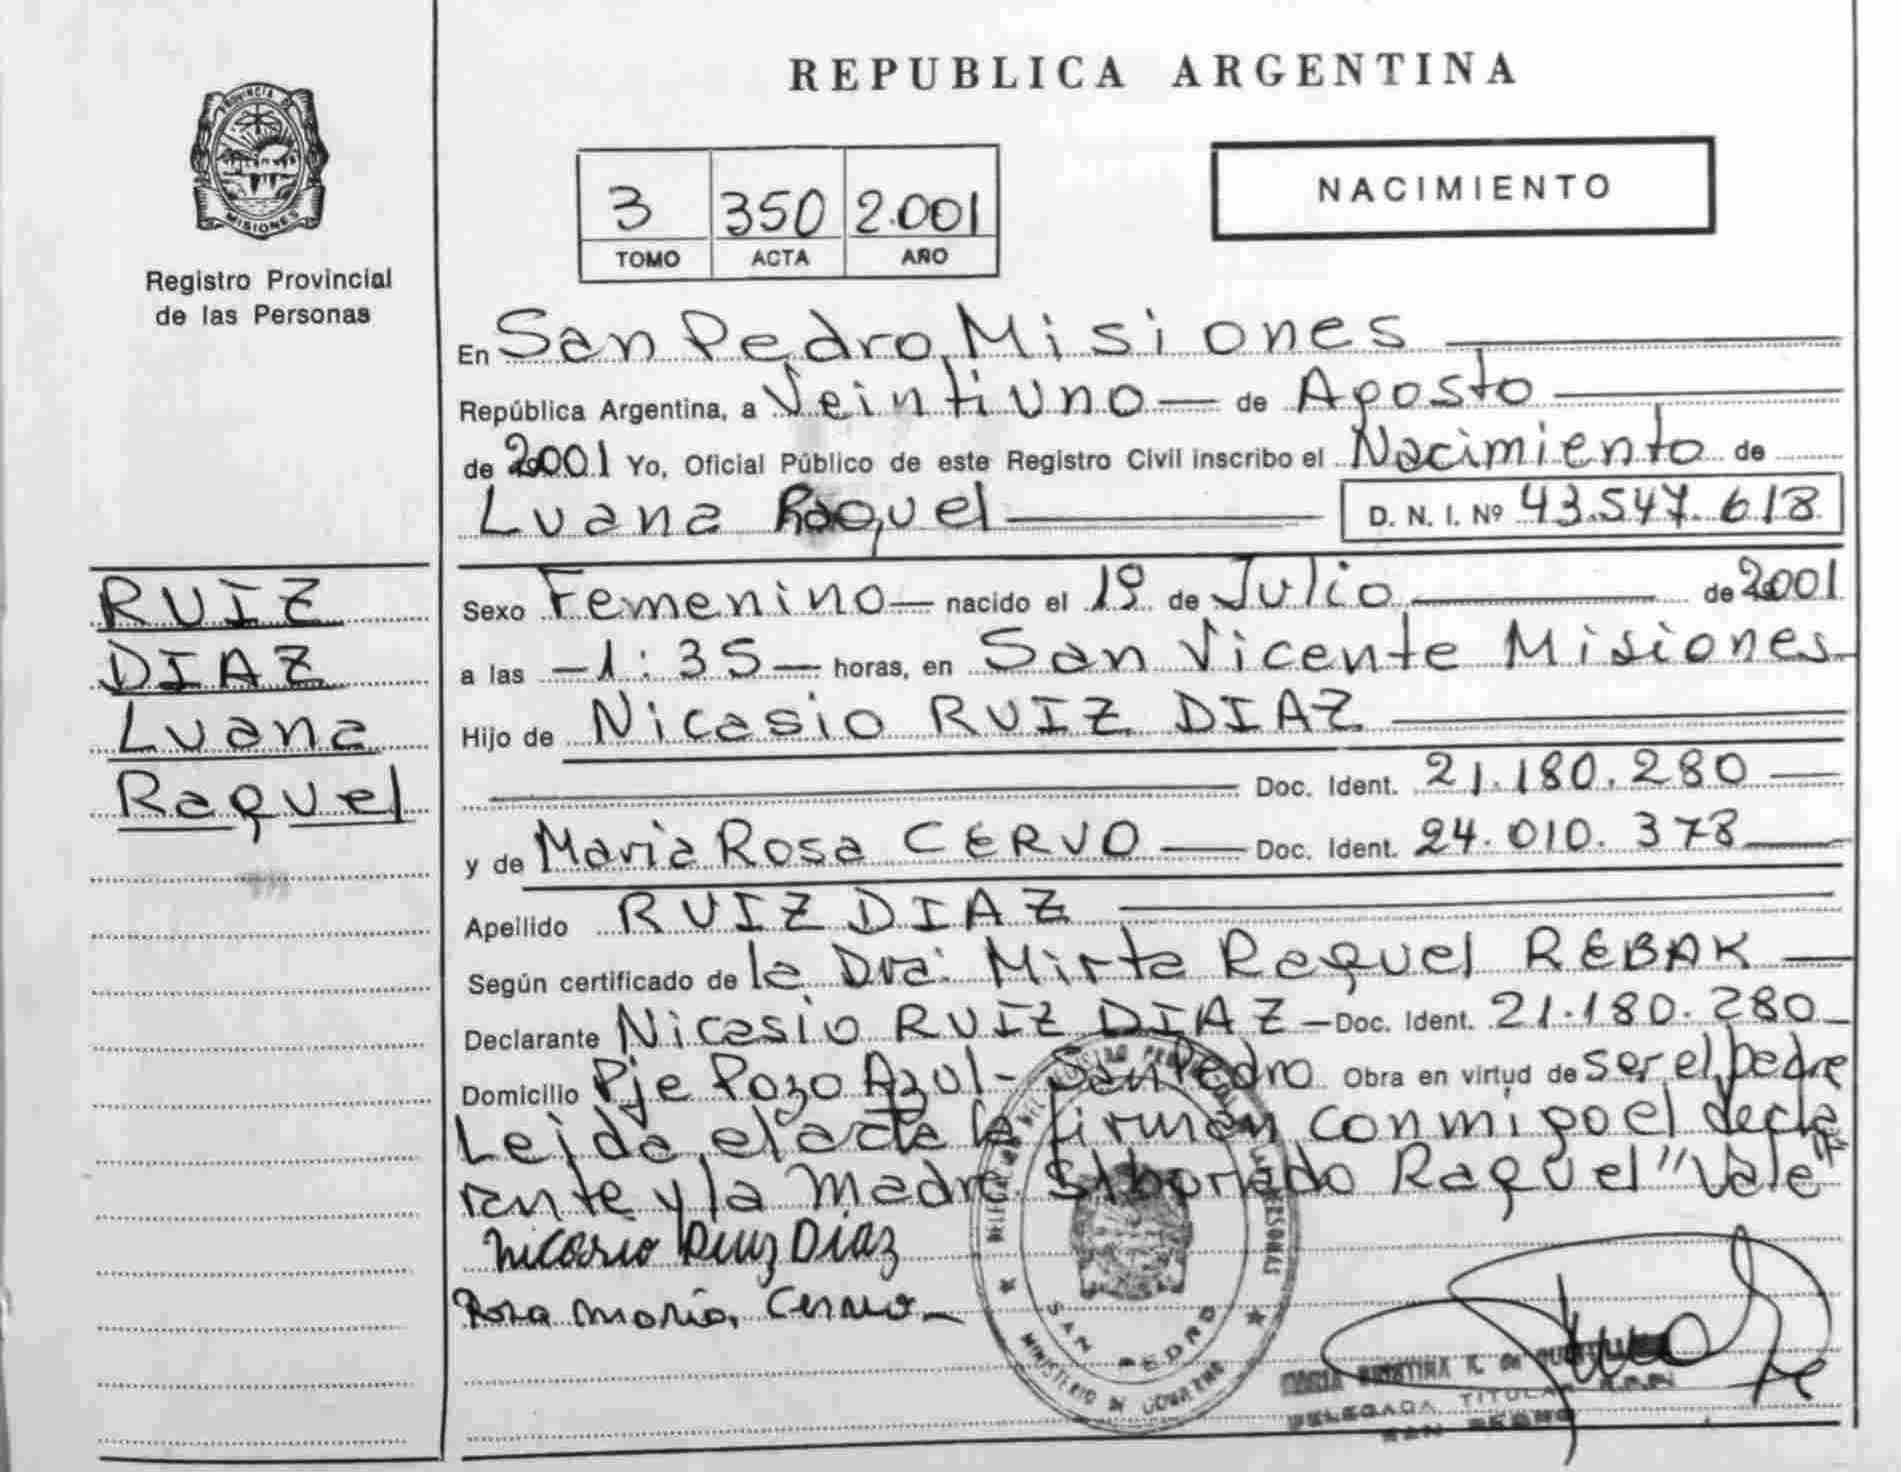 REPUBLICA ARGENTINA
PROVINCIA DE
MISIONES
Registro Provincial
de las Personas
NACIMIENTO
3 350 2.001
TOMO ACTA AÑO
En San Pedro, Misiones
República Argentina, a Veintiuno de Agosto
de 2001 Yo, Oficial Público de este Registro Civil inscribo el Nacimiento de
Luana Raquel D. N. I. Nº 43.547.618
RUIZ
DIAZ
Luana
Raquel
Sexo Femenino nacido el 1º de Julio de 2001
a las -1:35- horas, en San Vicente Misiones
Hijo de Nicasio RUIZ DIAZ
Doc. Ident. 21.180.280
y de Maria Rosa CERVO Doc. Ident. 24.010.378
Apellido RUIZ DIAZ
Según certificado de la Dra: Mirta Raquel REBAK
Declarante Nicasio RUIZ DIAZ - Doc. Ident. 21.180.280
Domicilio Pje Pozo Azul - San Pedro Obra en virtud de ser el padre
Leida el acta la firman conmigo el decla
rante y la madre. S/borrado Raquel "Vale"
Nicasio Ruiz Diaz
Rosa Maria Cervo
SAN PEDRO
MINISTERIO DE GOBIERNO
DELEGADA TITULAR
SAN PEDRO